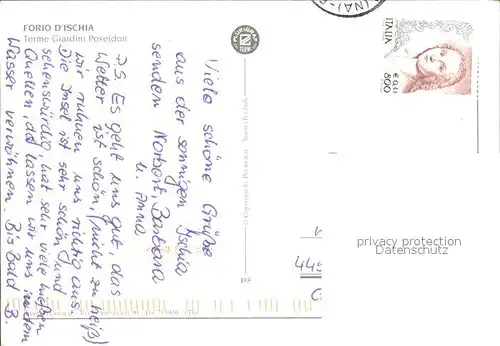 FORIO D'ISCHIA
Terme Giardini Poseidon
KURIGRAF
TERNI
ITALIA
€ 0,41
800
Viele schöne Grüße
aus der sonnigen Ischia
senden Norbert, Barbara
u. Anna
P.S. Es geht uns gut, das
Wetter ist schön (nicht zu heiß)
wir ruhen uns richtig aus.
Die Insel ist sehr schön und
sehenswürdig, hat sehr viele heißen
Quellen, da lassen wir uns in dem
Wasser verwöhnen. Bis bald B.
155
privacy protection
Datenschutz